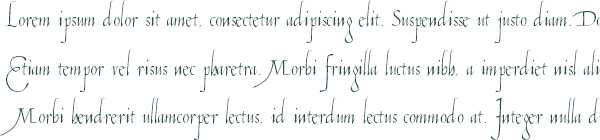 Lorem ipsum dolor sit amet, consectetur adipiscing elit. Suspendisse ut justo diam. Do
Etiam tempor vel risus nec pharetra. Morbi fringilla luctus nibh, a imperdiet nisl ali
Morbi hendrerit ullamcorper lectus, id interdum lectus commodo at. Integer nulla d